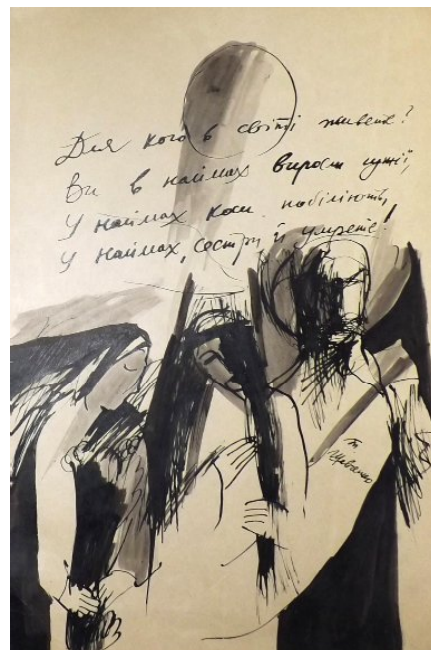 Для кого в світі живете?
Ви в наймах виросли чужії,
У наймах коси побіліють,
У наймах, сестри, й умрете!
Т. Шевченко